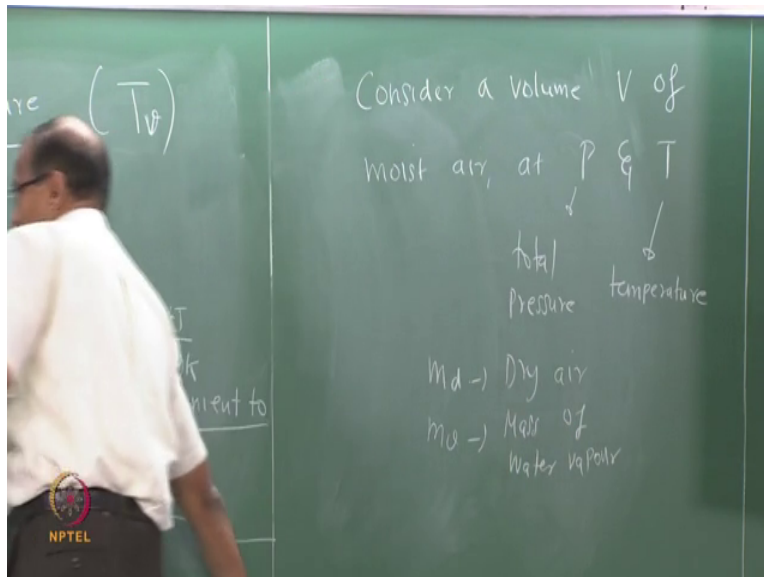 (Tv)
Consider a volume V of
moist air, at P & T
total
pressure
temperature
md -> Dry air
mv -> Mass of
Water vapour
NPTEL